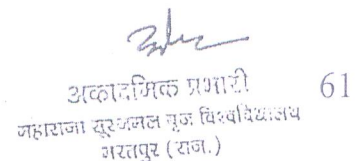 अकादमिक प्रभारी
61
महाराजा सूरजमल बृज विश्वविद्यालय
भरतपुर (राज.)